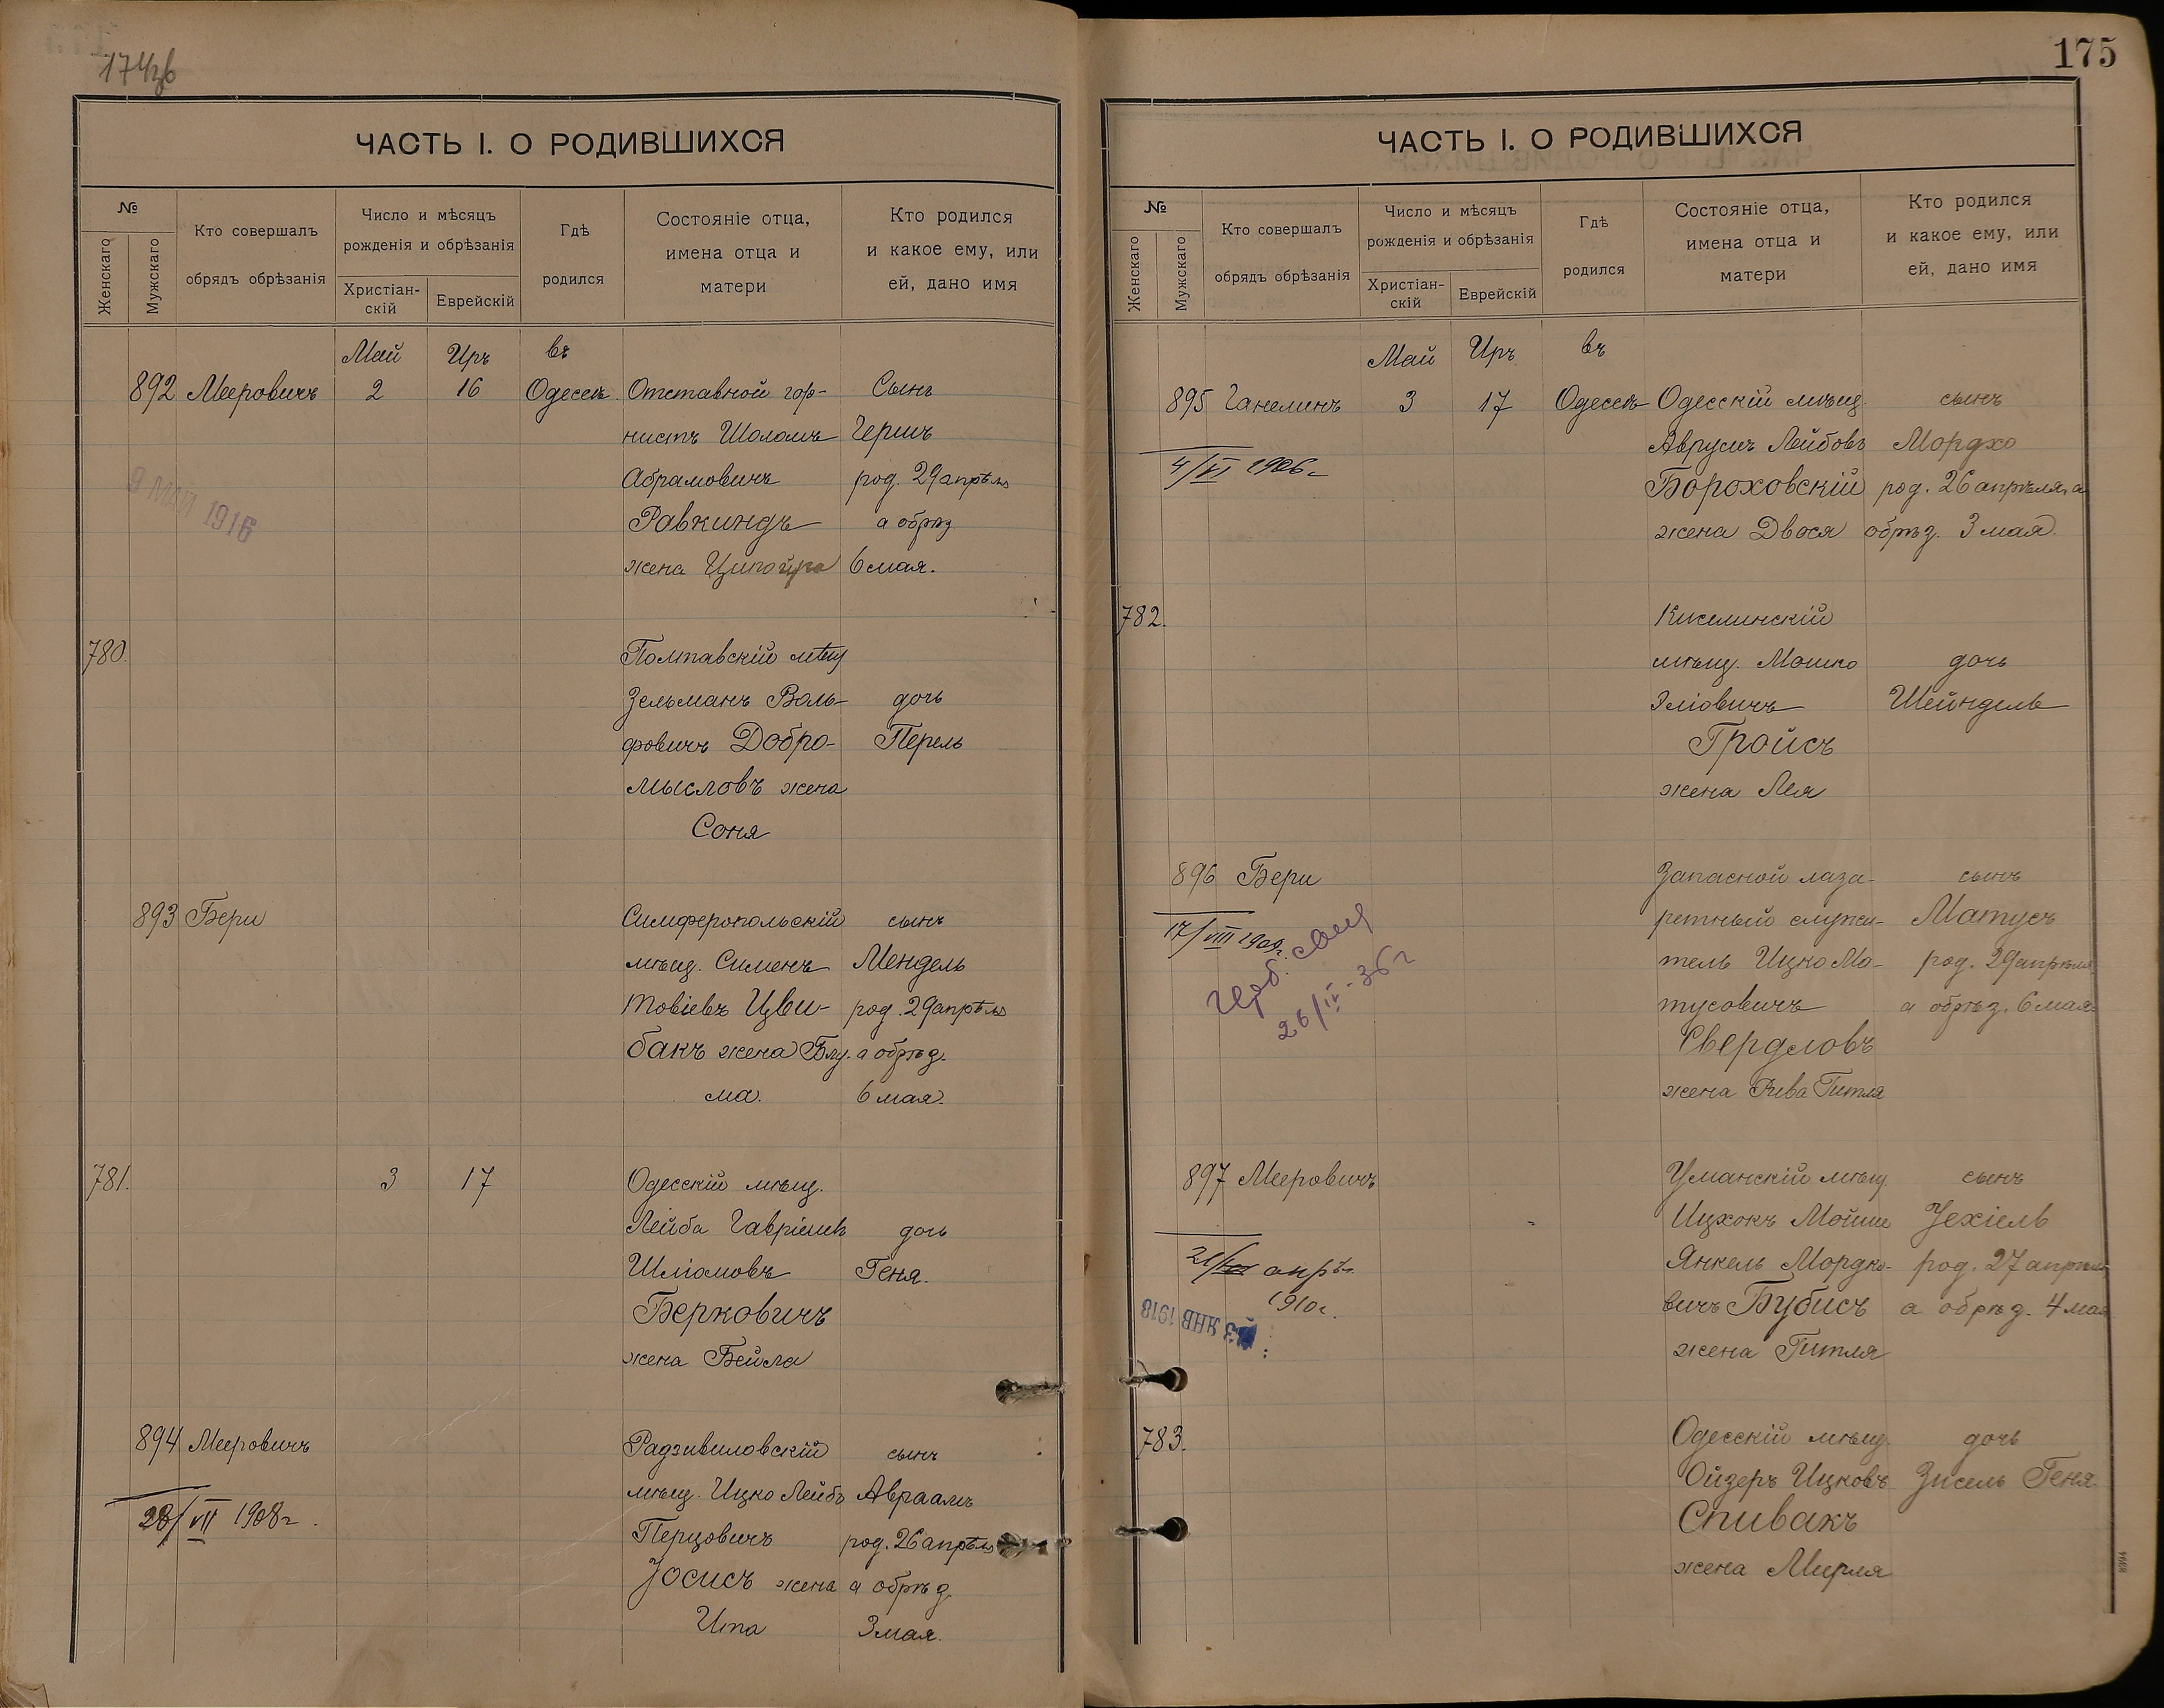 174об
ЧАСТЬ I. О РОДИВШИХСЯ
№
Женскаго
Мужскаго
Кто совершалъ
обрядъ обрѣзанія
Число и мѣсяцъ
рожденія и обрѣзанія
Христіан-
скій
Еврейскій
Гдѣ
родился
Состояніе отца,
имена отца и
матери
Кто родился
и какое ему, или
ей, дано имя
Май Иръ въ
892 Мееровичъ 2 16 Одессѣ Отставной гор- Сынъ
нистъ Шоломъ Гершъ
Абрамовичъ род. 29 апрѣля
Равкиндъ а обрѣз
жена Ципойра 6 мая.
9 МАЙ 1916
780. Полтавскій мѣщ
Зельманъ Воль- дочь
фовичъ Добро- Перель
мысловъ жена
Соня
893 Бери Симферопольскій сынъ
мѣщ. Сименъ Мендель
Товіевъ Цви- род. 29 апрѣля
бакъ жена Блу- а обрѣз.
ма. 6 мая.
781. 3 17 Одесскій мѣщ.
Лейба Гавріилъ дочь
Шліомовъ Геня.
Берковичъ
жена Бейла
894 Мееровичъ Радзивиловскій сынъ
мѣщ. Ицко Лейбъ Авраамъ
28/VII 1908 г.
Перцовичъ род. 26 апрѣля
Іосисъ жена а обрѣз.
Ита 3 мая.
175
ЧАСТЬ I. О РОДИВШИХСЯ
№
Женскаго
Мужскаго
Кто совершалъ
обрядъ обрѣзанія
Число и мѣсяцъ
рожденія и обрѣзанія
Христіан-
скій
Еврейскій
Гдѣ
родился
Состояніе отца,
имена отца и
матери
Кто родился
и какое ему, или
ей, дано имя
Май Иръ въ
895 Ганелинъ 3 17 Одессѣ Одесскій мѣщ. сынъ
Аврумъ Лейбовъ Мордхо
4/VI 1906 г.
Бороховскій род. 26 апрѣля, а
жена Двося обрѣз. 3 мая.
782. Киселинскій
мѣщ. Мошко дочь
Эліовичъ Шейндель
Гройсъ
жена Лея
896 Бери Запасной лаза- сынъ
ретный служи- Матусъ
17/VIII 1909 г.
тель Ицко Ма- род. 29 апрѣля
тусовичъ а обрѣз. 6 мая.
26/IV-36 г
Свердловъ
жена Рива Гитля
897 Мееровичъ Уманскій мѣщ сынъ
Ицхокъ Мойше Іехіель
Янкель Мордко- род. 27 апрѣля
вичъ Бубисъ а обрѣз. 4 мая
жена Гитля
апрѣ.
1910 г.
3 ЯНВ 1918
783. Одесскій мѣщ. дочь
Ойзеръ Ицковъ Зисель Геня.
Спивакъ
жена Мирля